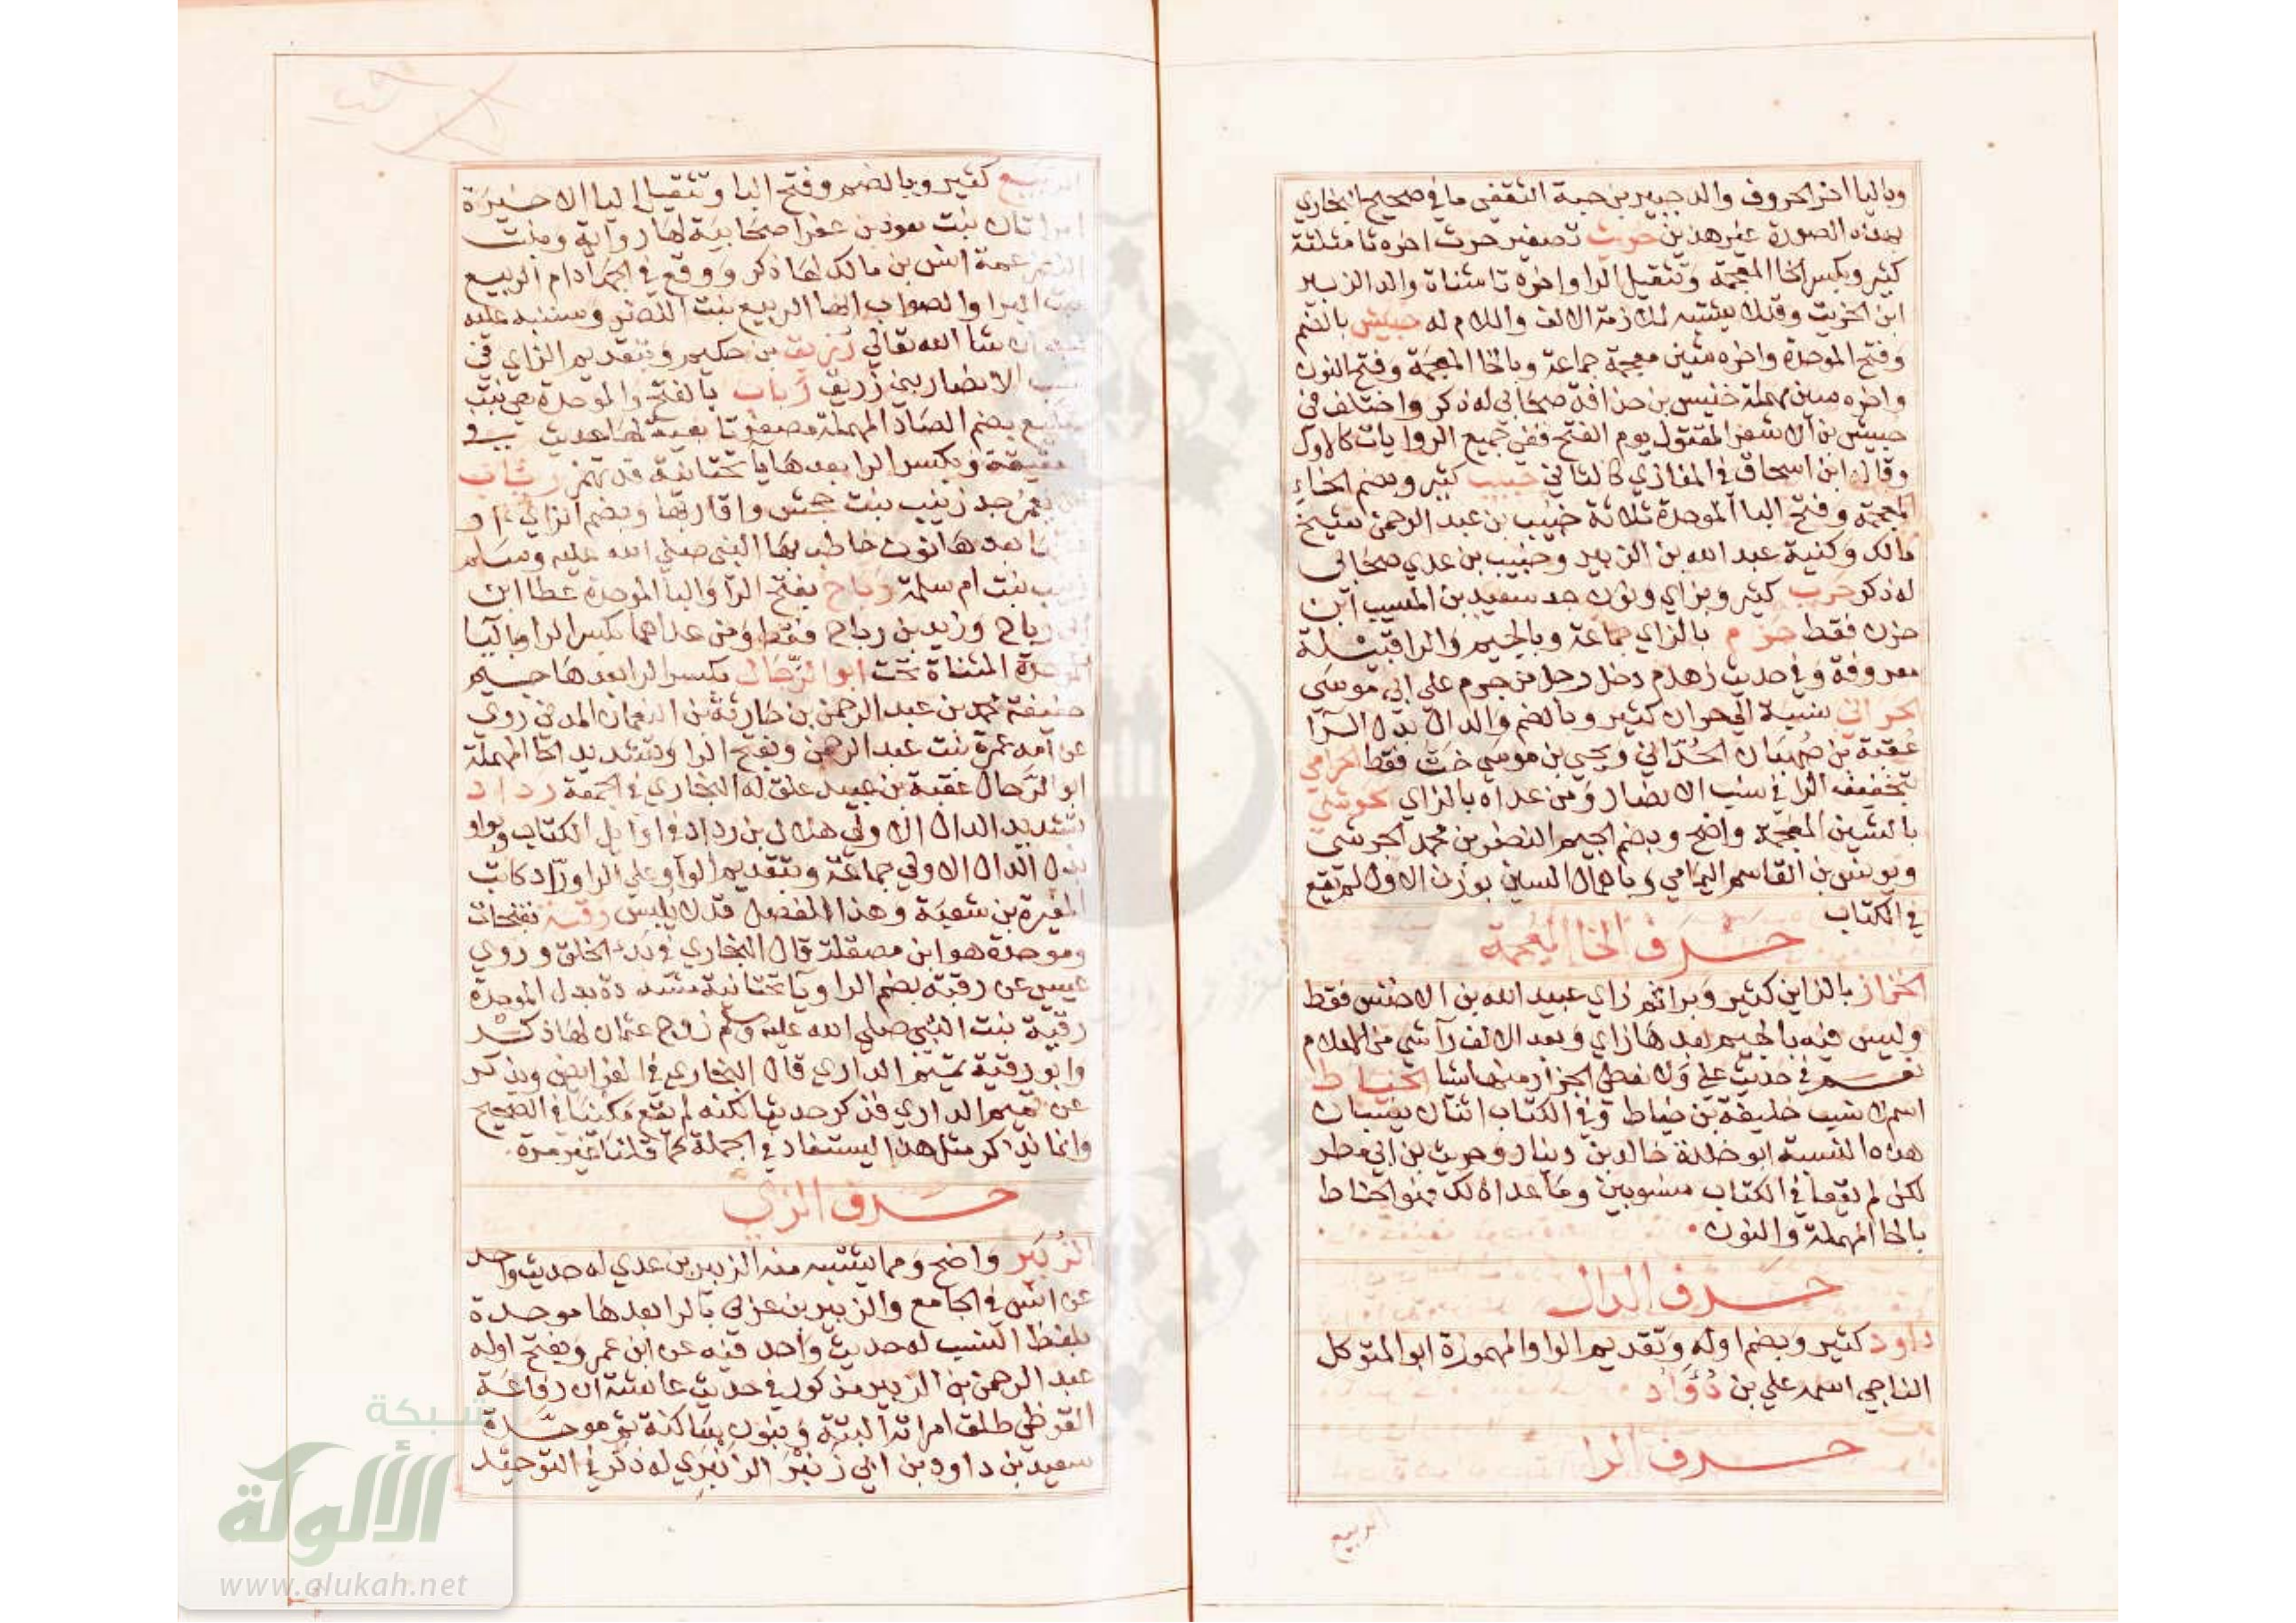 وباليا اخر الحروف والد جبير بن حية الثقفي ما في صحيح البخاري
بهذه الصورة غير هذين حريث تصغير حرث اخره ثا مثلثة
كثير وبكسر الخا المعجمة وتثقيل الرا واخره تا مثناة والد الزبير
ابن الخريت وقل يشتبه لملازمة الالف واللام له حبيش بالضم
وفتح الموحدة واخره شين معجمة جماعة وبالخا المعجمة وفتح النون
واخره سين مهملة خنيس بن حذافة صحابي له ذكر واختلف في
حبيش بن الاشعر المقتول يوم الفتح ففي جميع الروايات كالاول
وقال ابن اسحاق في المغازي كالثاني حبيب كثير وبضم الخاء
المعجمة وفتح البا الموحدة ثلاثة خبيب بن عبد الرحمن شيخ
مالك وكنية عبد الله بن الزبير وخبيب بن عدي صحابي
له ذكر حرب كثير وبزاي ونون جد سعيد بن المسيب ابن
حزن فقط حزم بالزاي جماعة وبالجيم والرا قبيلة
معروفة وفي حديث زهدم دخل رجل من جرم علي ابي موسي
الحراني نسبة الي حران كثير وبالضم والدال بدل الرا
عقبة بن صهبان الحداني ويحيي بن موسي خت فقط الحرامي
بتخفيف الرا في نسب الانصار ومن عداه بالزاي الحوشي
بالشين المعجمة واضح وبضم الجيم النضر بن محمد الجرشي
ويونس بن القاسم اليمامي وباهمال السين بوزن الاول لم يقع
في الكتاب
حرف الخا المعجمة
الخزاز بالزاين كثير وبرا ثم زاي عبيد الله بن الاخنس فقط
وليس فيه بالجيم بعدها زاي وبعد الالف را شي من الاعلام
نعم في حديث علي ولا نعطي الجزار منها شيا الخياط
اسم لا نسب خليفة بن خياط وفي الكتاب اثنان ينسبان
هذه النسبة ابو خلدة خالد بن دينار وحريث بن ابي مطر
لكن لم يقعا في الكتاب منسوبين وما عدا ذلك فهو الحناط
بالحا المهملة والنون
حرف الدال
داود كثير وبضم اوله وتقديم الواو المهموزة ابو المتوكل
الناجي اسمه علي بن دؤاد
حرف الرا
الربيع
الربيع كثير وبالضم وفتح البا وتثقيل اليا الاخيرة
امراتان بنت معوذ بن عفرا صحابية لها رواية وبنت
النضر عمة انس بن مالك لها ذكر ووقع في الجهاد ام الربيع
بنت البرا والصواب انها الربيع بنت النضر وسننبه عليه
ان شا الله تعالي رزيق بن حكيم وبتقديم الزاي في
نسب الانصار بني زريق رباب بالفتح والموحدة هي بنت
صليع بضم الصاد المهملة مصغر تابعية لها حديث في
العقيقة وبكسر الرا بعدها يا تحتانية قد تهمز رئاب
بن يعمر جد زينب بنت جحش واقاربها وبضم الزاي او
فتحها بعدها نون خاطب بها النبي صلي الله عليه وسلم
زينب بنت ام سلمة رباح بفتح الرا والبا الموحدة عطا ابن
ابي رباح وزيد بن رباح فقط ومن عداهما بكسر الرا وباليا
الموحدة المثناة تحت ابو الرجال بكسر الرا بعدها جيم
خفيفة محمد بن عبد الرحمن بن حارثة بن النعمان المدني روي
عن امه عمرة بنت عبد الرحمن وبفتح الرا وتشديد الحا المهملة
ابو الرحال عقبة بن عبيد علق له البخاري في الجمعة رداد
بتشديد الدال الاولي هلال بن رداد في اوايل الكتاب وبواو
بدل الدال الاولي جماعة وبتقديم الواو علي الرا وراد كاتب
المغيرة بن شعبة وهذا الفصل قل يلبس رقبة بفتحات
وموحدة هو ابن مصقلة قال البخاري في بدء الخلق وروي
عيسي عن رقبة بضم الرا ويا تحتانية مشددة بدل الموحدة
رقية بنت النبي صلي الله عليه وسلم زوج عثمان لها ذكر
وابو رقية تميم الداري قال البخاري في الفرايض ويذكر
عن تميم الداري فذكر حديثا لكنه لم يقع مكنيا في الصحيح
وانما نذكر مثل هذا ليستفاد في الجملة كما قلنا غير مرة
حرف الزي
الزبير واضح ومما يشتبه منه الزبير بن عدي له حديث واحد
عن انس في الجامع والزبير بن عربي بالرا بعدها موحدة
بلفظ النسب له حديث واحد فيه عن ابن عمر وبفتح اوله
عبد الرحمن بن الزبير مذكور في حديث عايشة ان رفاعة
القرظي طلق امراته البتة وبنون ساكنة ثم موحدة
سعيد بن داود بن ابي زنبر الزنبري له ذكر في التوحيد
شبكة
الألوكة
www.alukah.net